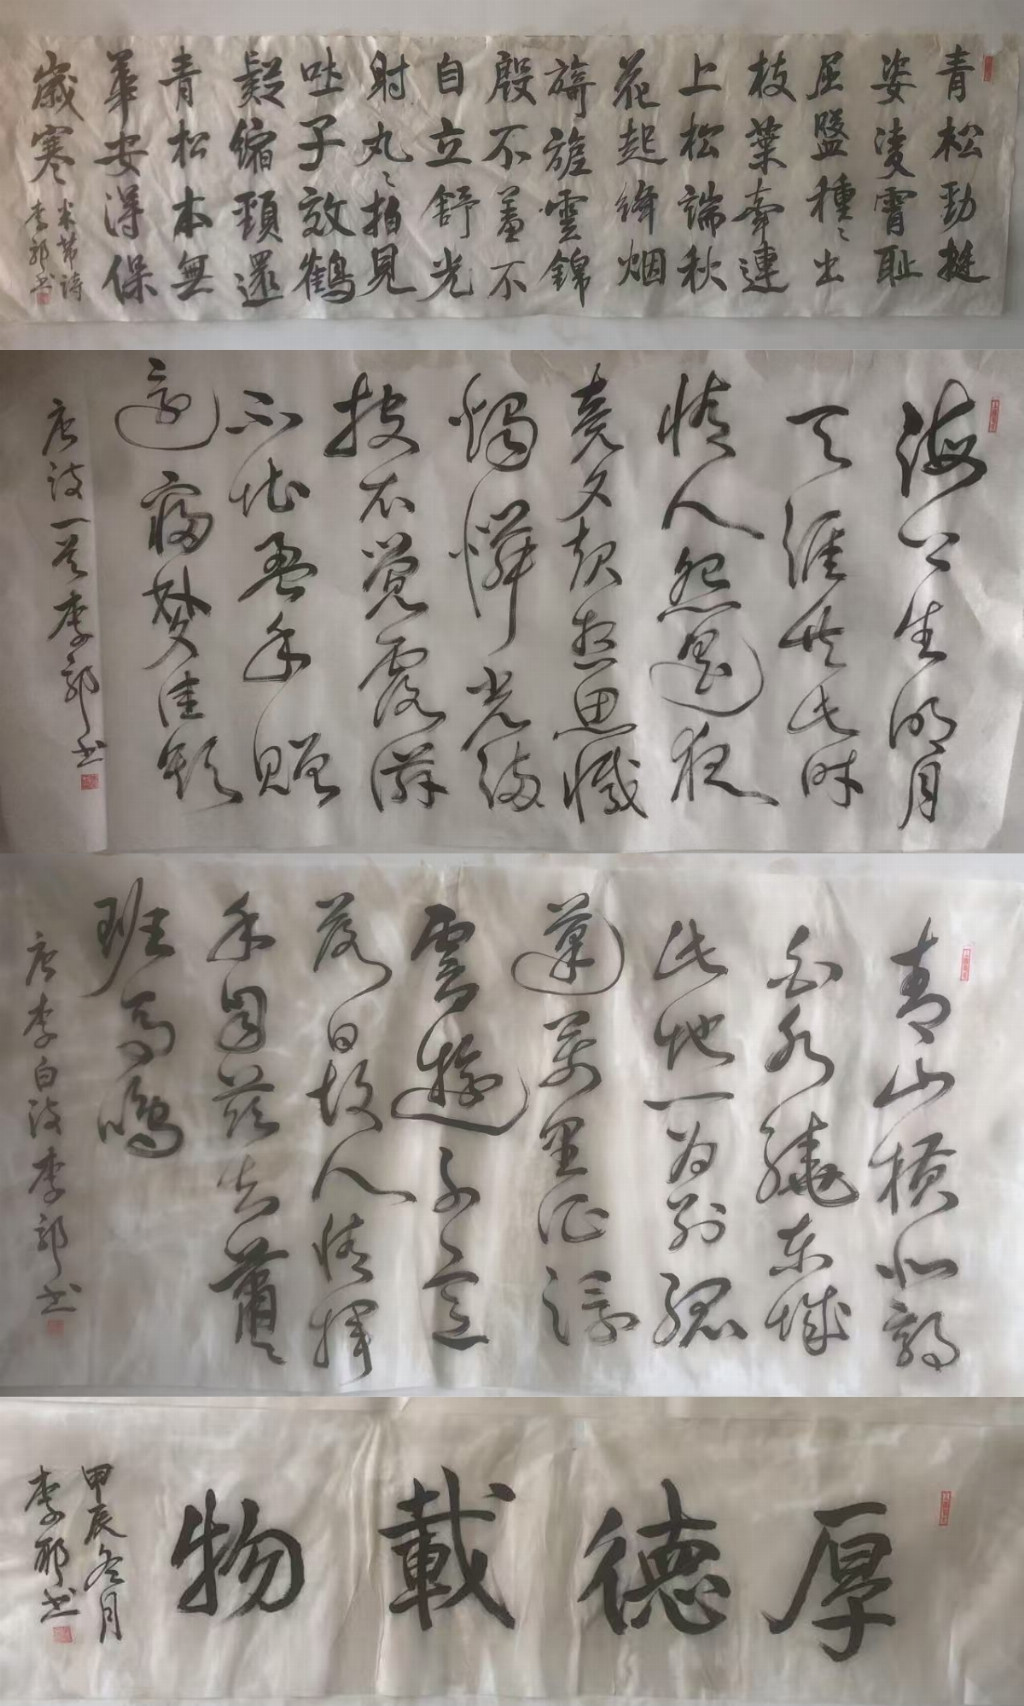 青松勁挺
姿凌霄耻
屈盤種々出
枝葉牽連
上松端秋
花起絳烟
旖旎雲錦
殷不羞不
自立舒光
射丸々柏見
吐子效鶴
疑縮頸還
青松本無
華安得保
歲寒
米芾詩
李郭书
海上生明月
天涯共此时
情人怨遥夜
竟夕起相思滅
燭憐光满
披衣覺露滋
不堪盈手贈
還寢夢佳期
唐诗一首李郭书
青山橫北郭
白水繞東城
此地一为别孤
蓬萬里征浮
雲遊子意
落日故人情揮
手自兹去蕭々
班馬鳴
唐李白诗李郭书
厚德載物
甲辰冬月
李郭书